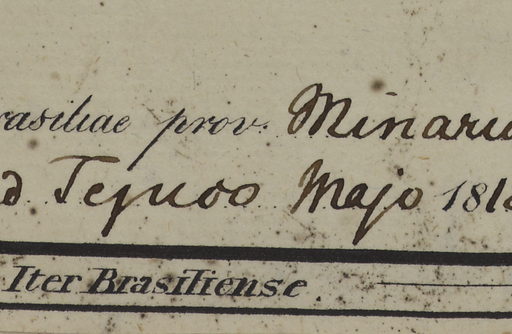 rasiliae prov. Minaru
d Tejuco Majo 1818
Iter Brasiliense